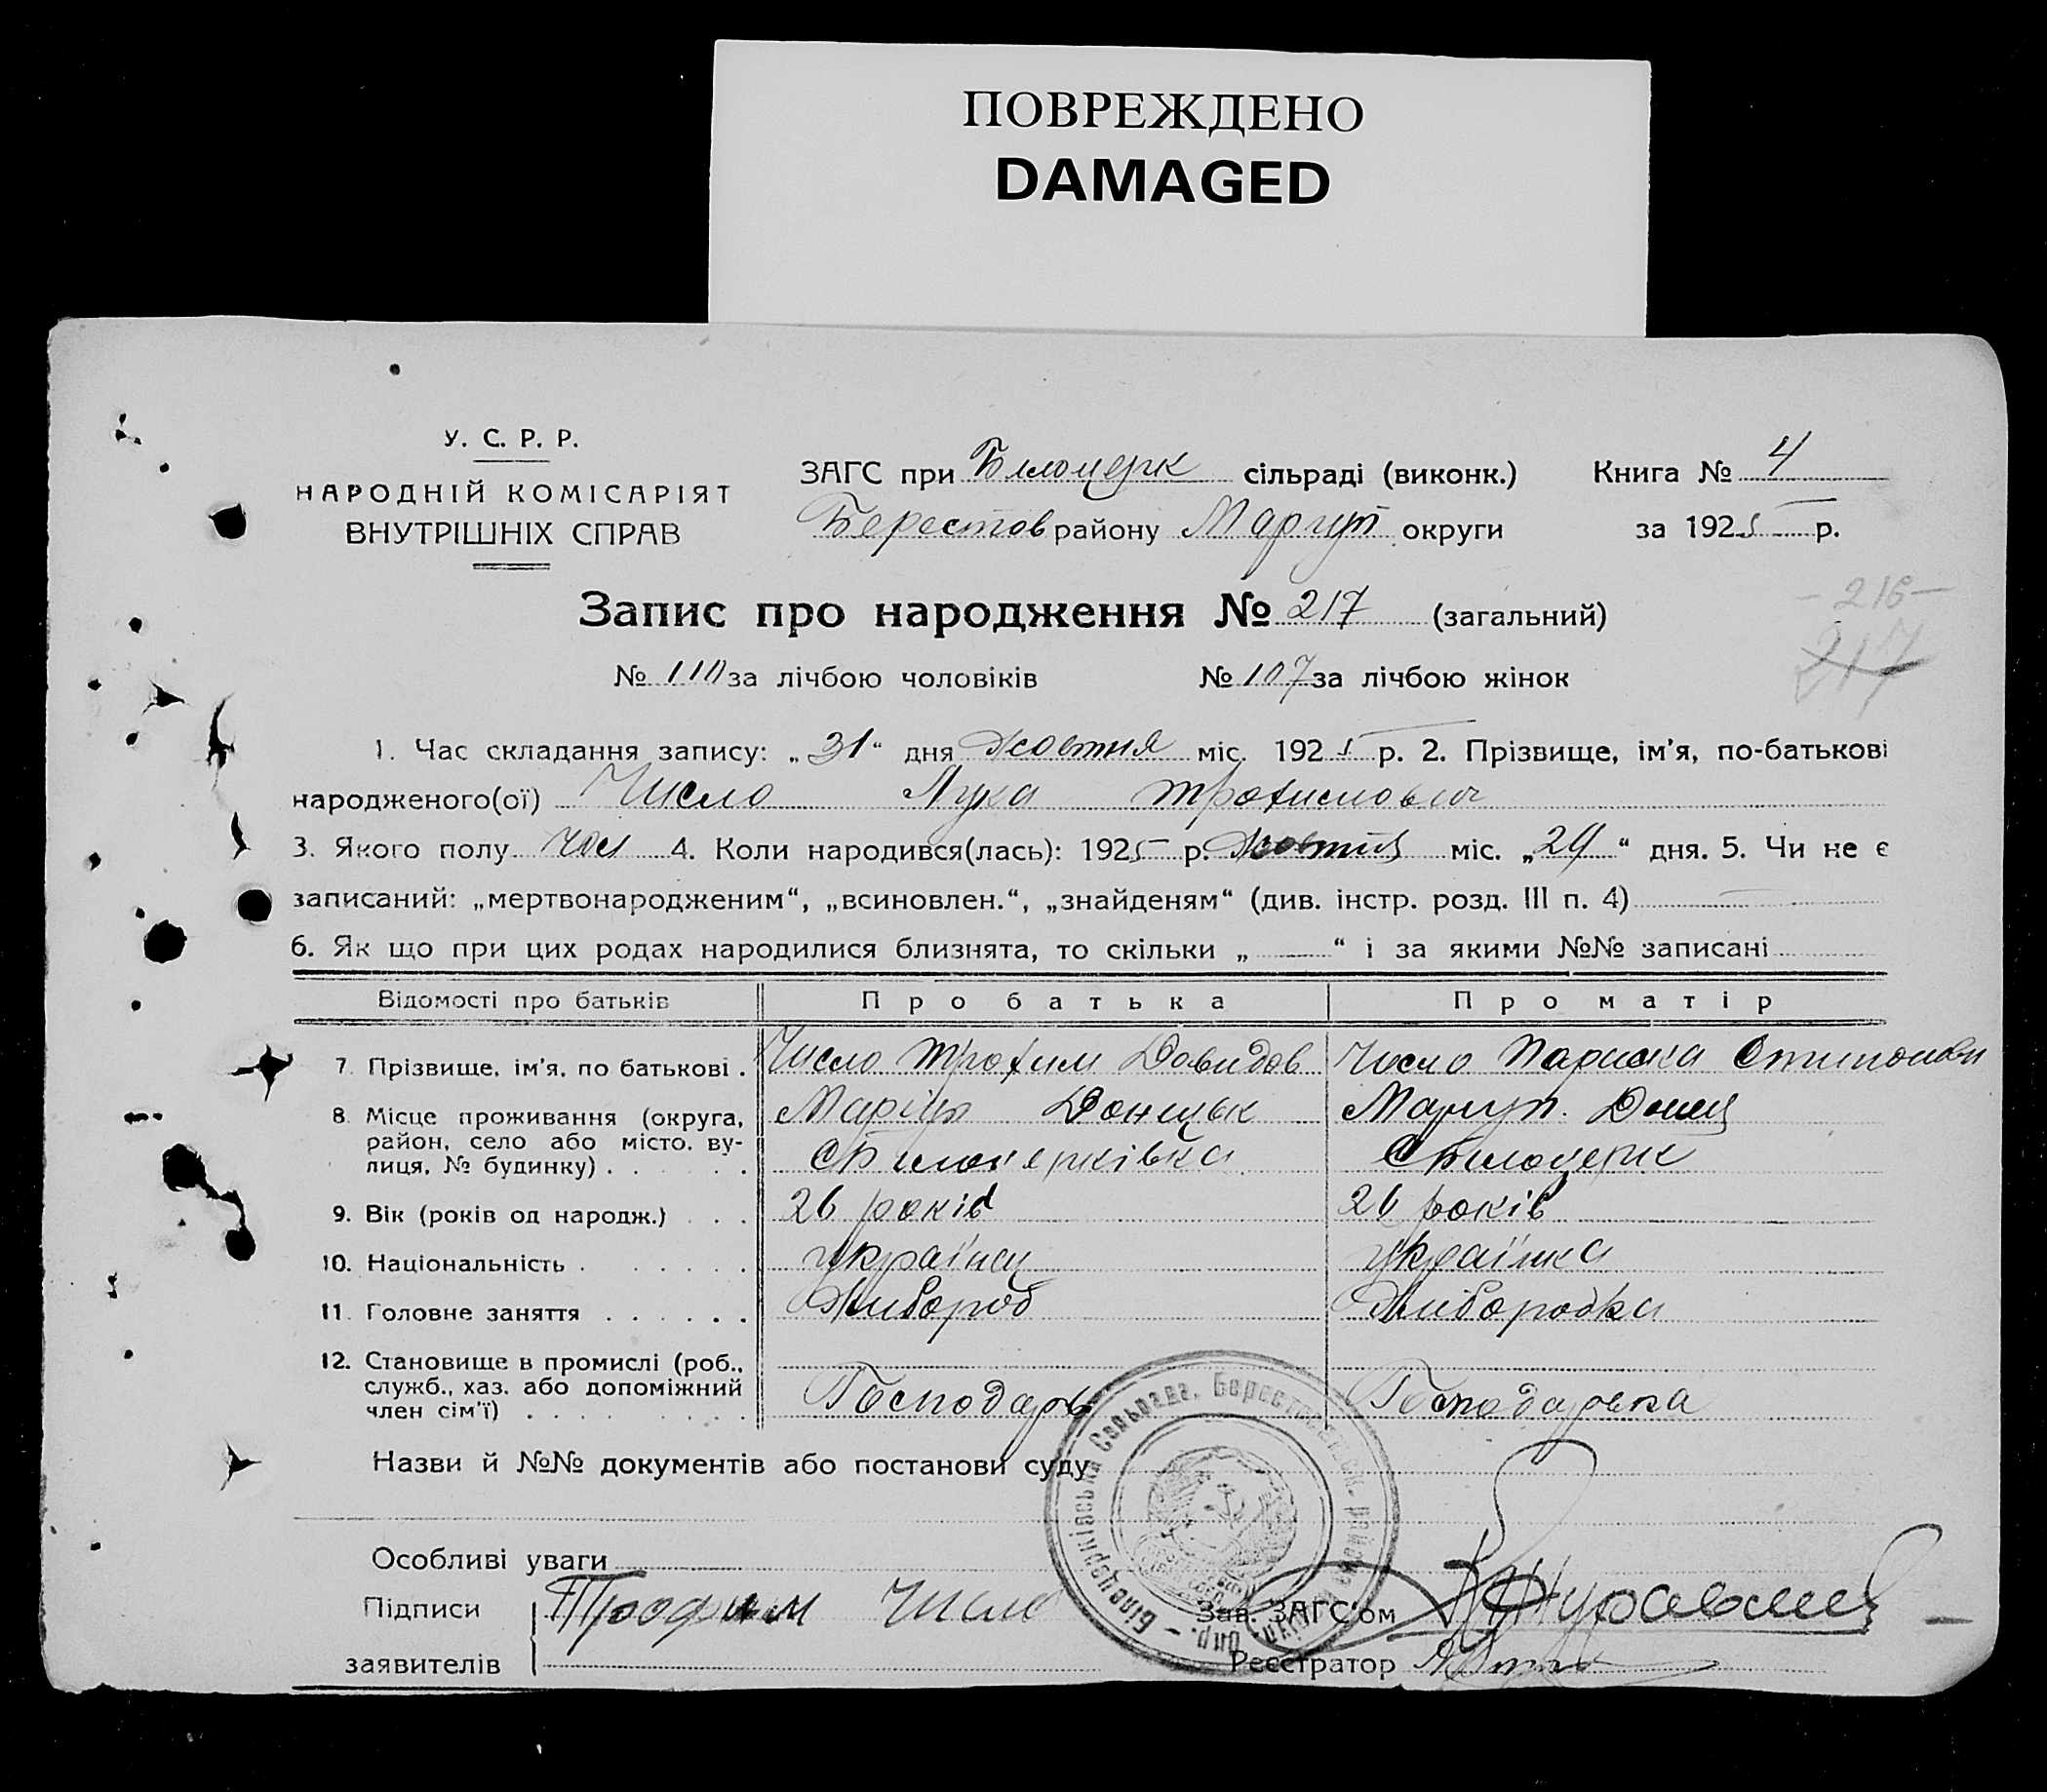 ПОВРЕЖДЕНО
DAMAGED
У. С. Р. Р.
НАРОДНІЙ КОМІСАРІЯТ
ВНУТРІШНІХ СПРАВ
ЗАГС при Білоцерк сільраді (виконк.) Книга № 4
Берестов району Маріуп округи за 1925 р.
Запис про народження № 217 (загальний)
– 216 –
217
№ 110 за лічбою чоловіків № 107 за лічбою жінок
1. Час складання запису: „31“ дня Жовтня міс. 1925 р. 2. Прізвище, ім'я, по-батькові
народженого(ої) Число Лука Трохимович
3. Якого полу чол 4. Коли народився(лась): 1925 р. Жовтня міс. „29“ дня. 5. Чи не є
записаний: „мертвонародженим“, „всиновлен.“, „знайденям“ (див. інстр. розд. III п. 4) —
6. Як що при цих родах народилися близнята, то скільки „ — “ і за якими №№ записані
Відомості про батьків Про батька Про матір
7. Прізвище, ім'я, по батькові . Число Трохим Давидов Число Параска
8. Місце проживання (округа, Маріуп Донецьк Маріуп. Донец
район, село або місто, ву-
лиця, № будинку) . . . . с Білоцерківка с Білоцерк
9. Вік (років од народж.) . . . 26 років 26 років
10. Національність . . . . . . українец українка
11. Головне заняття . . . . . . Хлібороб Хліборобка
12. Становище в промислі (роб.,
служб., хаз. або допоміжний
член сім'ї) . . . . . . . . Господарь Господарька
Назви й №№ документів або постанови суду
Особливі уваги
Підписи Трофим Число Зав. ЗАГС'ом Журавлев
заявителів Реєстратор
Білоцерківська Сельрада, Берестовськ. району